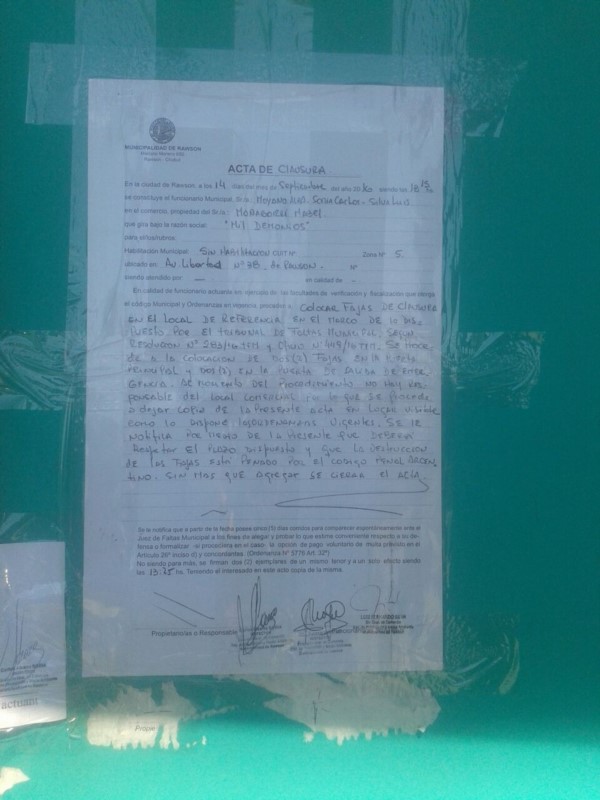 MUNICIPALIDAD DE RAWSON
Rawson - Chubut
ACTA DE CLAUSURA
En la ciudad de Rawson, a los 14 días del mes de Septiembre del año 20 siendo las 18
se constituye el funcionario Municipal, Sr/a.: Moyano
en el comercio, propiedad del Sr./a.: Mabel
que gira bajo la razón social: "Mil DEMONIOS"
para el/los rubros:
Habilitación Municipal: Sin Habilitacion Zona Nº 5.
ubicado en: Av. Libertad Nº 78 de Rawson. Nº
siendo atendido por — en calidad de —
En calidad de funcionario actuante en ejercicio de las facultades de verificación y fiscalización que otorga
el código Municipal y Ordenanzas en vigencia, procedo a: COLOCAR FAJAS DE CLAUSURA
EN EL LOCAL DE REFERENCIA EN EL MARCO DE LO DIS
PUESTO POR EL TRIBUNAL DE FALTAS MUNICIPAL, SEGUN
RESOLUCION Nº Y OFICIO Nº SE PROCE
DE A LA COLOCACION DE DOS (2) FAJAS EN LA PUERTA
PRINCIPAL Y DOS (2) EN LA PUERTA DE SALIDA DE EMER
GENCIA. AL MOMENTO DEL PROCEDIMIENTO NO HAY RES
PONSABLE DEL LOCAL COMERCIAL POR LO QUE SE PROCEDE
A DEJAR COPIA DE LA PRESENTE ACTA EN LUGAR VISIBLE
COMO LO DISPONE LAS ORDENANZAS VIGENTES. SE LE
NOTIFICA POR MEDIO DE LA PRESENTE QUE DEBERA
RESPETAR EL PLAZO DISPUESTO Y QUE LA DESTRUCCION
DE LAS FAJAS ESTA PENADO POR EL CODIGO PENAL ARGEN
TINO. SIN MAS QUE AGREGAR SE CIERRA EL ACTA.
Se le notifica que a partir de la fecha posee cinco (5) días corridos para comparecer espontáneamente ante el
Juez de Faltas Municipal a los fines de alegar y probar lo que estime conveniente respecto a su de-
fensa o formalizar -si procediera en el caso- la opción de pago voluntario de multa previsto en el
Artículo 26º inciso f) y concordantes (Ordenanza Nº 5776 Art. 22º)
No siendo para más, se firman dos (2) ejemplares de un mismo tenor y a un solo efecto siendo
las hs. Teniendo el interesado en este acto copia de la misma.
Propietario/a o Responsable
actuant
Propie